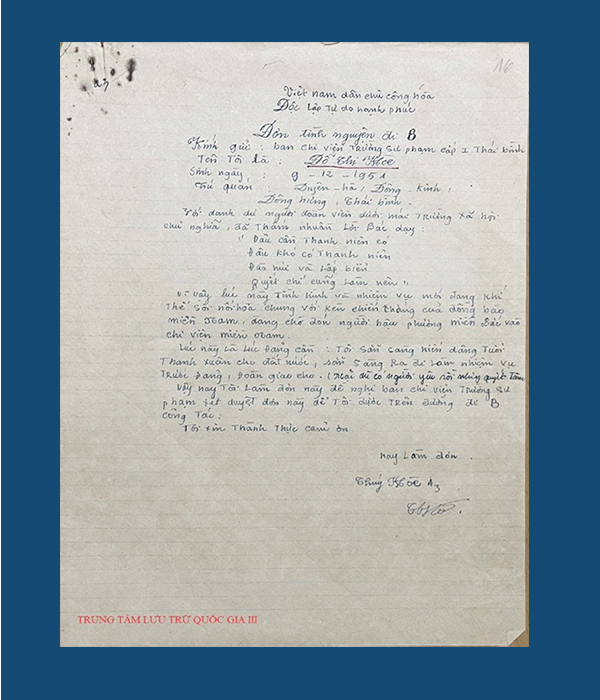 16
Việt nam dân chủ cộng hóa
Độc lập Tự do hạnh phúc
Đơn tình nguyện đi B
Kính gửi : ban chi viện Trường sư phạm cấp I Thái bình
Tên Tôi là : Đỗ Thị Khoe
Sinh ngày : 9 - 12 - 1951
Trú quán : Duyên-hà, Đông-kinh,
Đông hưng, Thái bình.
Với danh dự người đoàn viên dưới mái Trường xã hội
chủ nghĩa, đã Thấm nhuần Lời Bác dạy:
" Đâu cần Thanh niên có
Đâu khó có Thanh niên
Đào núi và Lấp biển
quyết chí cũng Làm nên "
vì vậy lúc này Tình hình và nhiệm vụ mới đang khí
Thế sôi nổi hòa chung với kèn chiến thắng của đồng bào
miền Nam, đang chờ đón người hậu phương miền Bắc vào
chi viện miền Nam.
Lúc này là Lúc Đảng cần : Tôi sẵn sàng hiến dâng Tuổi
Thanh xuân cho đất nước, sẵn sàng Ra đi Làm nhiệm vụ
Trước Đảng, Đoàn giao cho.
Vậy nay Tôi Làm đơn này đề nghị ban chi viện Trường sư
phạm xét duyệt đơn này để Tôi được Trên đường đi B
công Tác.
Tôi xin Thành Thực cảm ơn
nay Làm đơn
Thúy Khoe A3
TRUNG TÂM LƯU TRỮ QUỐC GIA III